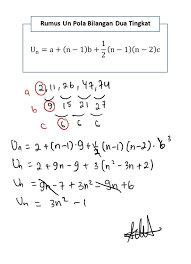 Rumus Un Pola Bilangan Dua Tingkat
Uₙ = a + (n − 1)b + 1/2 (n − 1)(n − 2)c
a 2, 11, 26, 47, 74
b 9 15 21 27
c 6 6 6
Un = 2 + (n-1) · 9 + 1/2 (n-1)(n-2) · 6 3
Un = 2 + 9n - 9 + 3(n² - 3n + 2)
Un = 9n - 7 + 3n² - 9n + 6
Un = 3n² - 1